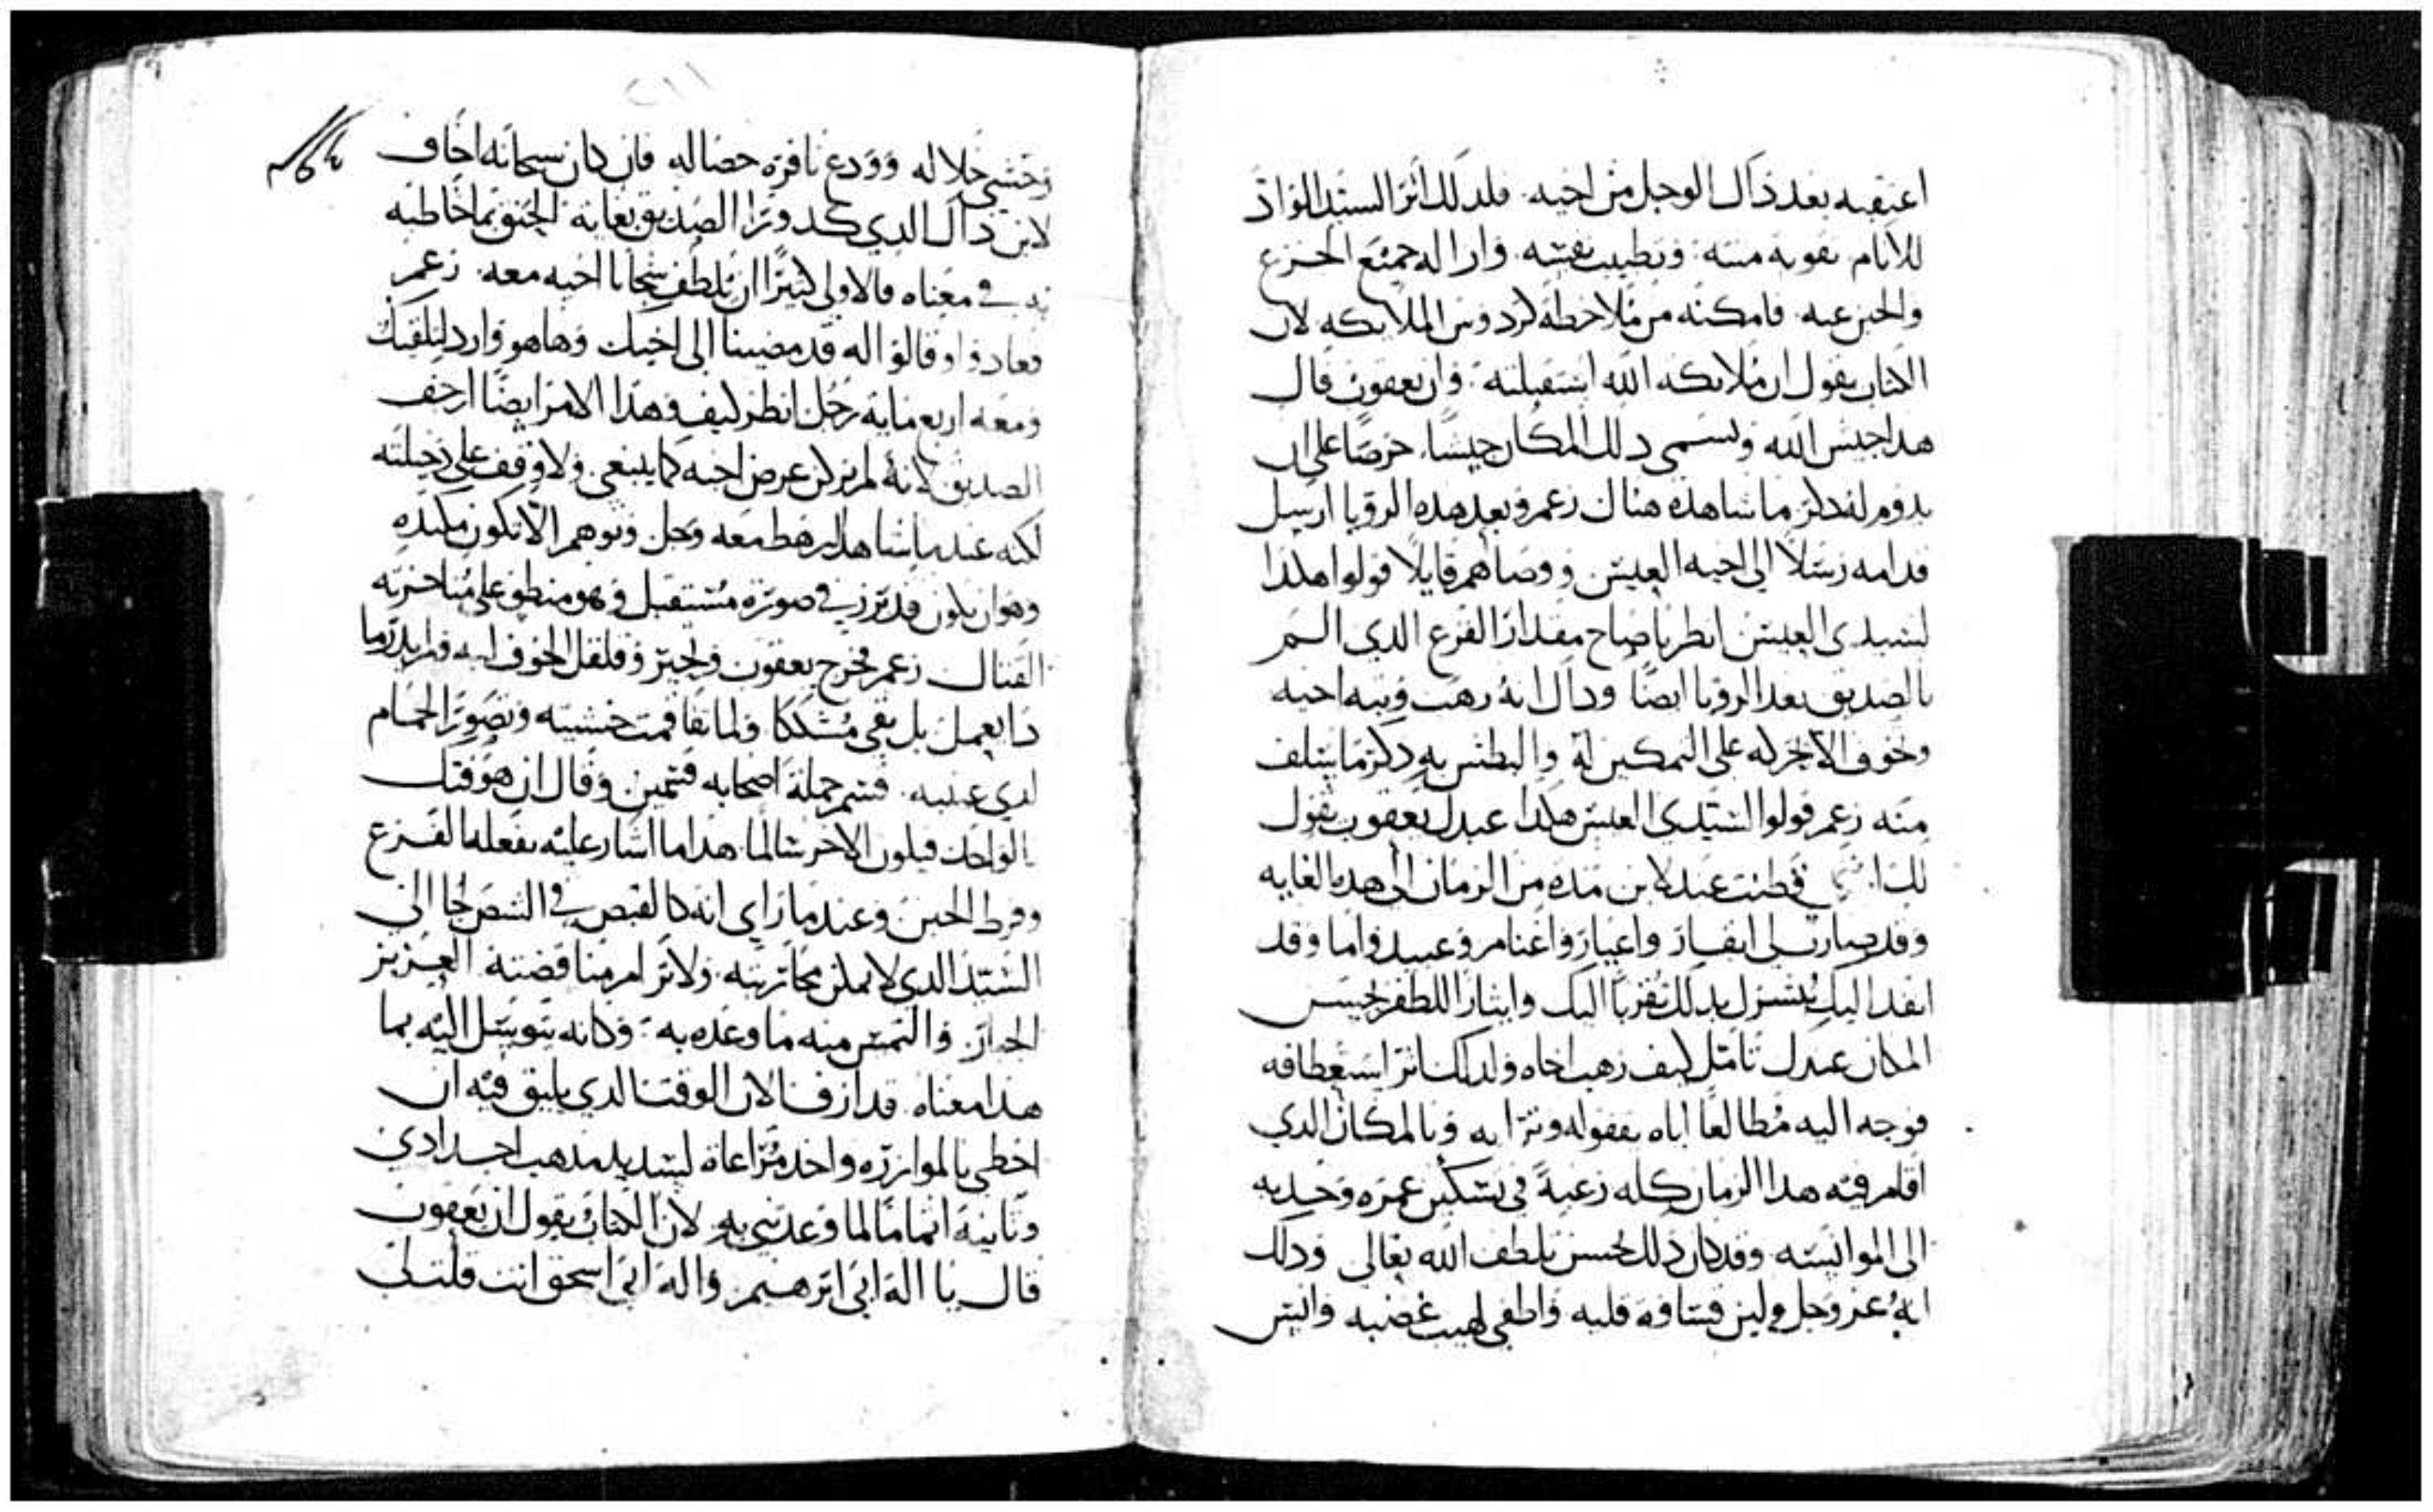 اعتقبه بعد ذاك الوجل من اخيه. فلدلك اثر السيد الواد
للانام تقوية منته. وتطييب نفسه. وازاله جميع الجزع
والجبن عنه. فامكنه من ملاحظة كردوس الملايكه لان
الكتاب يقول ان ملايكه الله استقبلته. وان يعقوب قال
هدا جيش الله وتسمى دلك المكان جيشا. حرصا على ان
يدوم لفدكر ما شاهده هناك زعم وبعد هده الرويا ارسل
قدامه رسلا الى اخيه العيس ووصاهم قايلا قولوا هكدا
لسيدى العيس انظر يا صاح مقدار الفزع الدي الم
بالصديق بعد الرويا ايضا وداك انه رهب وتبه اخيه
وتخوف الا يجركه على التمكين له والبطش به دكر ما سلف
منه زعم قولوا السيدى العيس هكدا عبدك يعقوب يقول
لك قطنت عند لابن مده من الزمان الى هده الغايه
وقد صارت لى ابقار واعيار واغنام وعبيد واما وقد
انفد اليك عبدك تقربا اليك وايثارا للظفر بحسن
المكان عندك تامل كيف رهب اخاه ولدلك اثر استعطافه
فوجه اليه مطالعا اياه بقفوله وترايه وبالمكان الدي
اقام فيه هدا الزمان كله رغبة في تسكين غمره وجدبه
الى الموانسه وقد كان دلك بحسن لطف الله تعالى ودلك
انه عز وجل لين قساوة قلبه واطفى لهيب غضبه وانس
جلاله وودع نافرة خصاله فان كان سبحانه اخاف
لابن داك الدي كد ورا الصديق بغاية الحنق بما خاطبه
به في معناه فالاولى كثيرا ان يلطف سجايا اخيه معه. زعم
فعادوا وقالوا له قد مضينا الى اخيك وها هو وارد لتلقيك
ومعه اربع ماية رجل انظر كيف وهدا الامر ايضا ارجف
الصديق لانه لم يزكن غرض اخيه كما ينبغي ولا وقف على دخيلته
لكنه عند ما شاهد الرهط معه وجل وتوهم الا تكون مكيده
وهو ان يكون قد برز في صورة مستقبل وهو منطو على مناجزته
القتال زعم فخرج يعقوب وتحير وقلقل الخوف لبه فلم يدر ما
دا يعمل بل بقى مشككا ولما تفاقمت خشيته وتصور الحمام
لدي عينيه. قسم جملة اصحابه قسمين وقال ان هو فتك
بالواحد فيكون الاخر سالما. هدا ما اشار عليه بفعله الفزع
وفرط الجبن وعند ما راي انه كالقبض في الشص لجا الى
السيد الدي لا يمكن محاربته ولا ترام مناقضته العزيز
الجبار. والتمس منه ما وعده به. وكانه يتوسل اليه بما
هدا معناه قد ازف الان الوقت الدي يليق فيه ان
احظى بالموازره واحد مراعاة لتسديد مدهب اجدادي
وثانية اتماما لما وعدتني به لان الكتاب يقول ان يعقوب
قال يا اله ابى ابرهيم واله ابى اسحق انت قلت لى